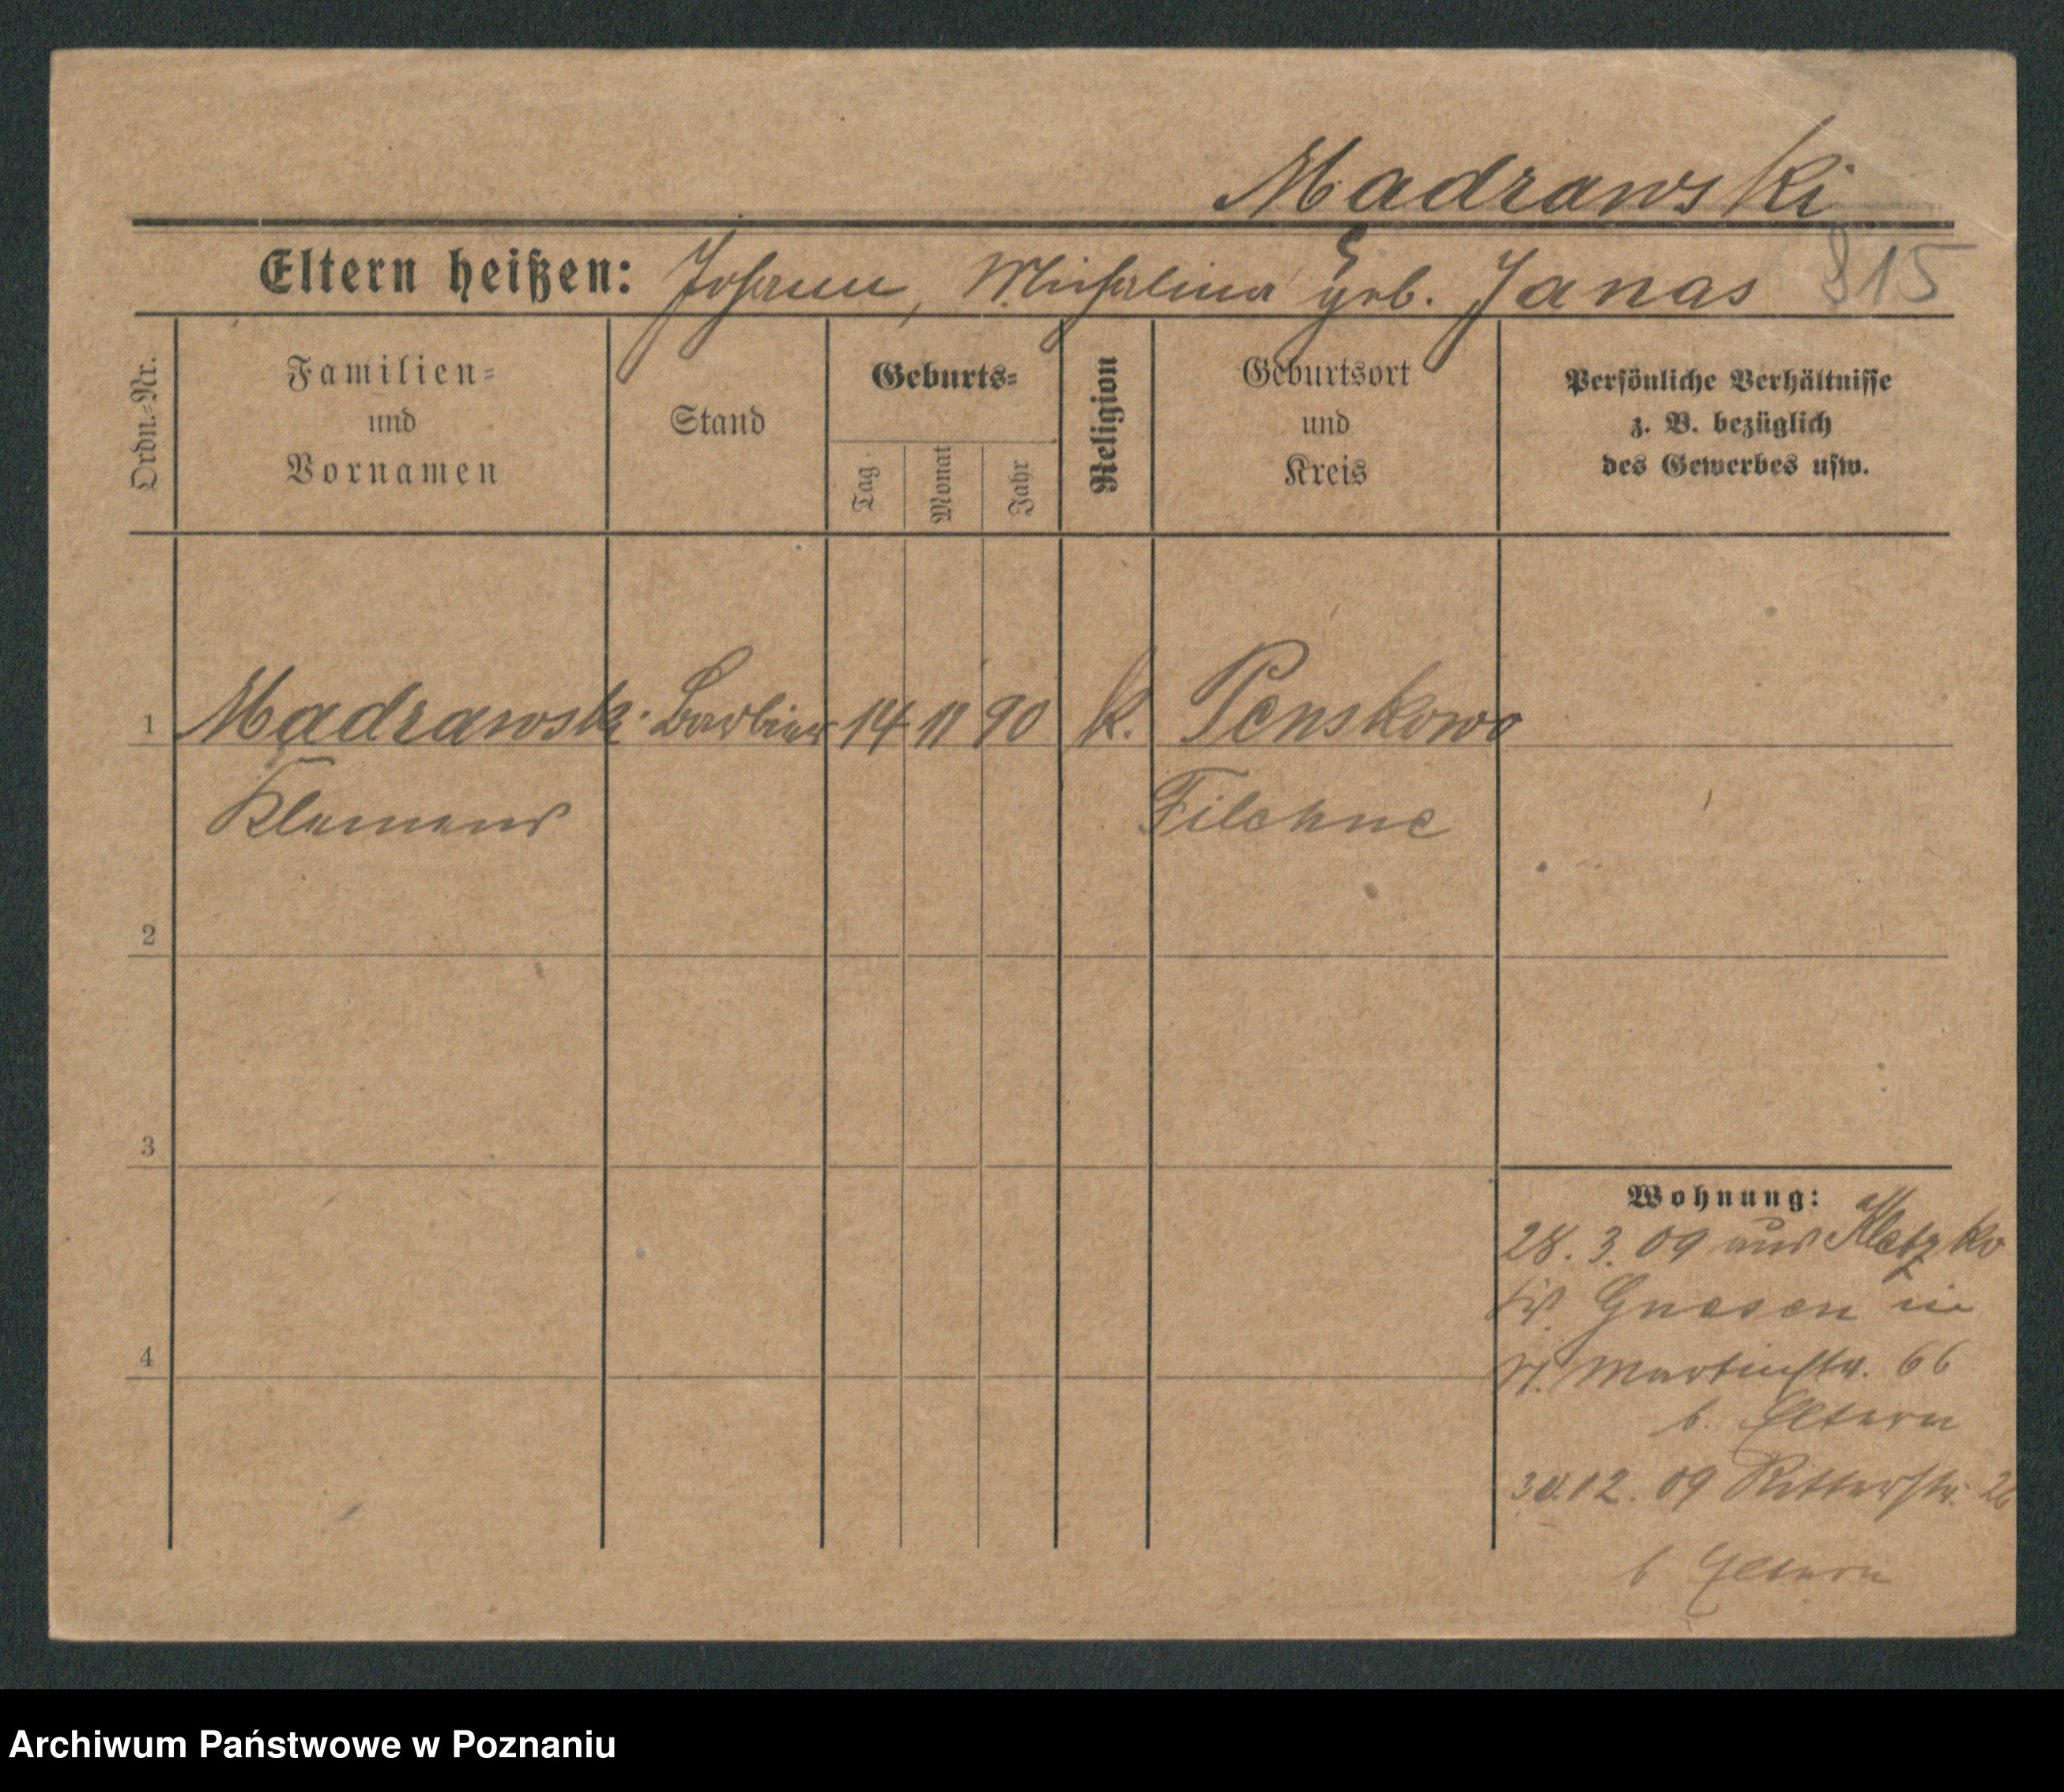 Madrawski
Eltern heißen: Johann, Michalina geb. Janas 815
Ordn.=Nr.
Familien=
und
Vornamen
Stand
Geburts=
Tag
Monat
Jahr
Religion
Geburtsort
und
Kreis
Persönliche Verhältnisse
z. B. bezüglich
des Gewerbes usw.
1 Madrawski Barbier 14 11 90 k. Penskowo
Klemens Filehne
2
3
4
Wohnung:
28. 3. 09 aus Kletzko
Kr. Gnesen in
St. Martinstr. 66
b. Eltern
30.12. 09 Ritterstr. 26
b Eltern
Archiwum Państwowe w Poznaniu